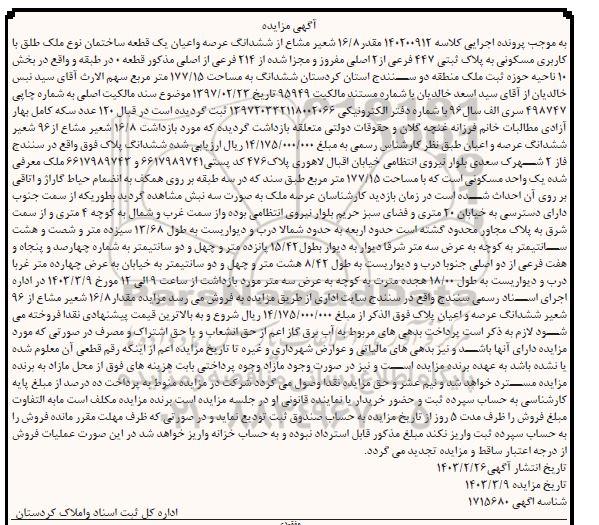 آگهی مزایده
به موجب پرونده اجرایی کلاسه ۱۴۰۲۰۰۹۱۲ مقدر ۱۶/۸ شعیر مشاع از ششدانگ عرصه واعیان یک قطعه ساختمان نوع ملک طلق با
کاربری مسکونی به پلاک ثبتی ۴۴۷ فرعی از ۲ اصلی مفروز و مجزا شده از ۲۱۴ فرعی از اصلی مذکور قطعه ۰ در طبقه و واقع در بخش
۱۰ ناحیه حوزه ثبت ملک منطقه دو سنندج استان کردستان ششدانگ به مساحت ۱۷۷/۱۵ متر مربع سهم الارث آقای سید نبس
خالدیان از آقای سید اسعد خالدیان با شماره مستند مالکیت ۹۵۹۴۹ تاریخ ۱۳۹۷/۰۲/۲۳ موضوع سند مالکیت اصلی به شماره چاپی
۴۹۸۷۴۷ سری الف سال ۹۶ با شماره دفتر الکترونیکی ۱۳۹۷۲۰۳۴۲۱۱۸۰۰۲۰۶۶ ثبت گردیده است در قبال ۱۲۰ عدد سکه کامل بهار
آزادی مطالبات خانم فرزانه غنچه گلان و حقوقات دولتی متعلقه بازداشت گردیده که مورد بازداشت ۱۶/۸ شعیر مشاع از ۹۶ شعیر
ششدانگ عرصه و اعیان طبق نظر کارشناس رسمی به مبلغ ۱۴/۱۷۵/۰۰۰/۰۰۰ ریال ارزیابی شده ششدانگ پلاک فوق واقع در سنندج
فاز ۲ شهرک سعدی بلوار نیروی انتظامی خیابان اقبال لاهوری پلاک ۴۷۶ کد پستی ۶۶۱۷۹۸۹۷۴۱ و ۶۶۱۷۹۸۹۷۴۳ ملک معرفی
شده یک واحد مسکونی است که با مساحت ۱۷۷/۱۵ متر مربع طبق سند که در سه طبقه بر روی همکف به انضمام حیاط گاراژ و اتاقی
بر روی آن احداث شده است در زمان بازدید کارشناسان عرصه ملک به صورت سه نبش مشاهده گردید بطوریکه از سمت جنوب
دارای دسترسی به خیابان ۲۰ متری و فضای سبز حریم بلوار نیروی انتظامی بوده واز سمت غرب و شمال به کوچه ۴ متری و از سمت
شرق به پلاک مجاور محدود گشته است حدود اربعه به حدود شمالا درب و دیواریست به طول ۱۳/۶۸ سیزده متر و شصت و هشت
سانتیمتر به کوچه به عرض سه متر شرقا دیوار به دیوار بطول ۱۵/۴۲ پانزده متر و چهل و دو سانتیمتر به شماره چهارصد و پنجاه و
هفت فرعی از دو اصلی جنوبا درب و دیواریست به طول ۸/۴۲ هشت متر و چهل و دو سانتیمتر به خیابان به عرض چهارده متر غربا
درب و دیواریست به طول ۱۸/۰۰ هجده مترت به کوچه به عرض سه متر مورد بازداشت از ساعت ۹ الی ۱۲ مورخ ۱۴۰۳/۳/۹ در اداره
اجرای اسناد رسمی سنندج واقع در سنندج سایت اداری از طریق مزایده به فروش می رسد مزایده مقدار ۱۶/۸ شعیر مشاع از ۹۶
شعیر ششدانگ عرصه و اعیان پلاک فوق الذکر از مبلغ ۱۴/۱۷۵/۰۰۰/۰۰۰ ریال شروع و به بالاترین قیمت پیشنهادی نقدا فروخته می
شود لازم به ذکر است پرداخت بدهی های مربوط به آب برق گاز اعم از حق انشعاب و یا حق اشتراک و مصرف در صورتی که مورد
مزایده دارای آنها باشد و نیز بدهی های مالیاتی و عوارض شهرداری و غیره تا تاریخ مزایده اعم از اینکه رقم قطعی آن معلوم شده
یا نشده باشد به عهده برنده مزایده است و نیز در صورت وجود مازاد وجوه پرداختی بابت هزینه های فوق از محل مازاد به برنده
مزایده مسترد خواهد شد و نیم عشر و حق مزایده نقدا وصول می گردد شرکت در مزایده منوط به پرداخت ده در صد از مبلغ پایه
کارشناسی به حساب سپرده ثبت و حضور خریدار یا نماینده قانونی او در جلسه مزایده است برنده مزایده مکلف است مابه التفاوت
مبلغ فروش را ظرف مدت ۵ روز از تاریخ مزایده به حساب صندوق ثبت تودیع نماید و در صورتی که ظرف مهلت مقرر مانده فروش را
به حساب سپرده ثبت واریز نکند مبلغ مذکور قابل استرداد نبوده و به حساب خزانه واریز خواهد شد در این صورت عملیات فروش
از درجه اعتبار ساقط و مزایده تجدید می گردد.
تاریخ انتشار آگهی ۱۴۰۳/۲/۲۶
تاریخ مزایده ۱۴۰۳/۳/۹
شناسه اگهی ۱۷۱۵۶۸۰
اداره کل ثبت اسناد واملاک کردستان